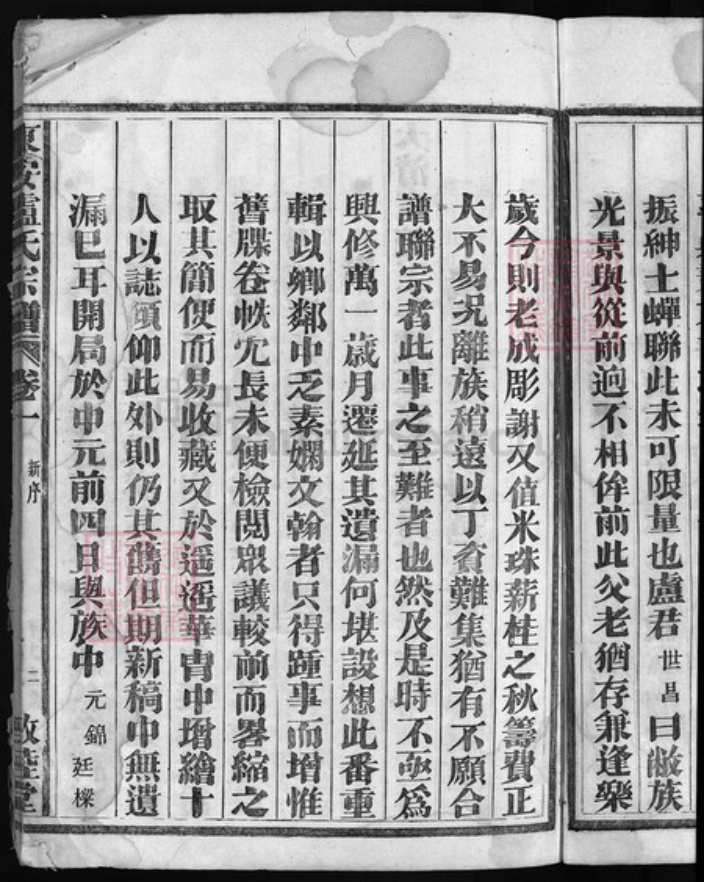 振紳士蟬聯此未可限量也盧君世昌曰敝族
光景與從前逈不相侔前此父老猶存兼逢樂
歲今則老成彫謝又值米珠薪桂之秋籌費正
大不易况離族稍遠以丁貧難集猶有不願合
譜聯宗者此事之至難者也然及是時不亟為
興修萬一歲月遷延其遺漏何堪設想此番重
輯以鄉鄰中乏素嫻文翰者只得踵事而增惟
舊牒卷帙冗長未便檢閱眾議較前而畧縮之
取其簡便而易收藏又於遥遥華胄中增繪十
人以誌頫仰此外則仍其舊但期新稿中無遺
漏已耳開局於中元前四日與族中元錦廷樑
東安盧氏宗譜 卷一 新序 二 敦睦堂